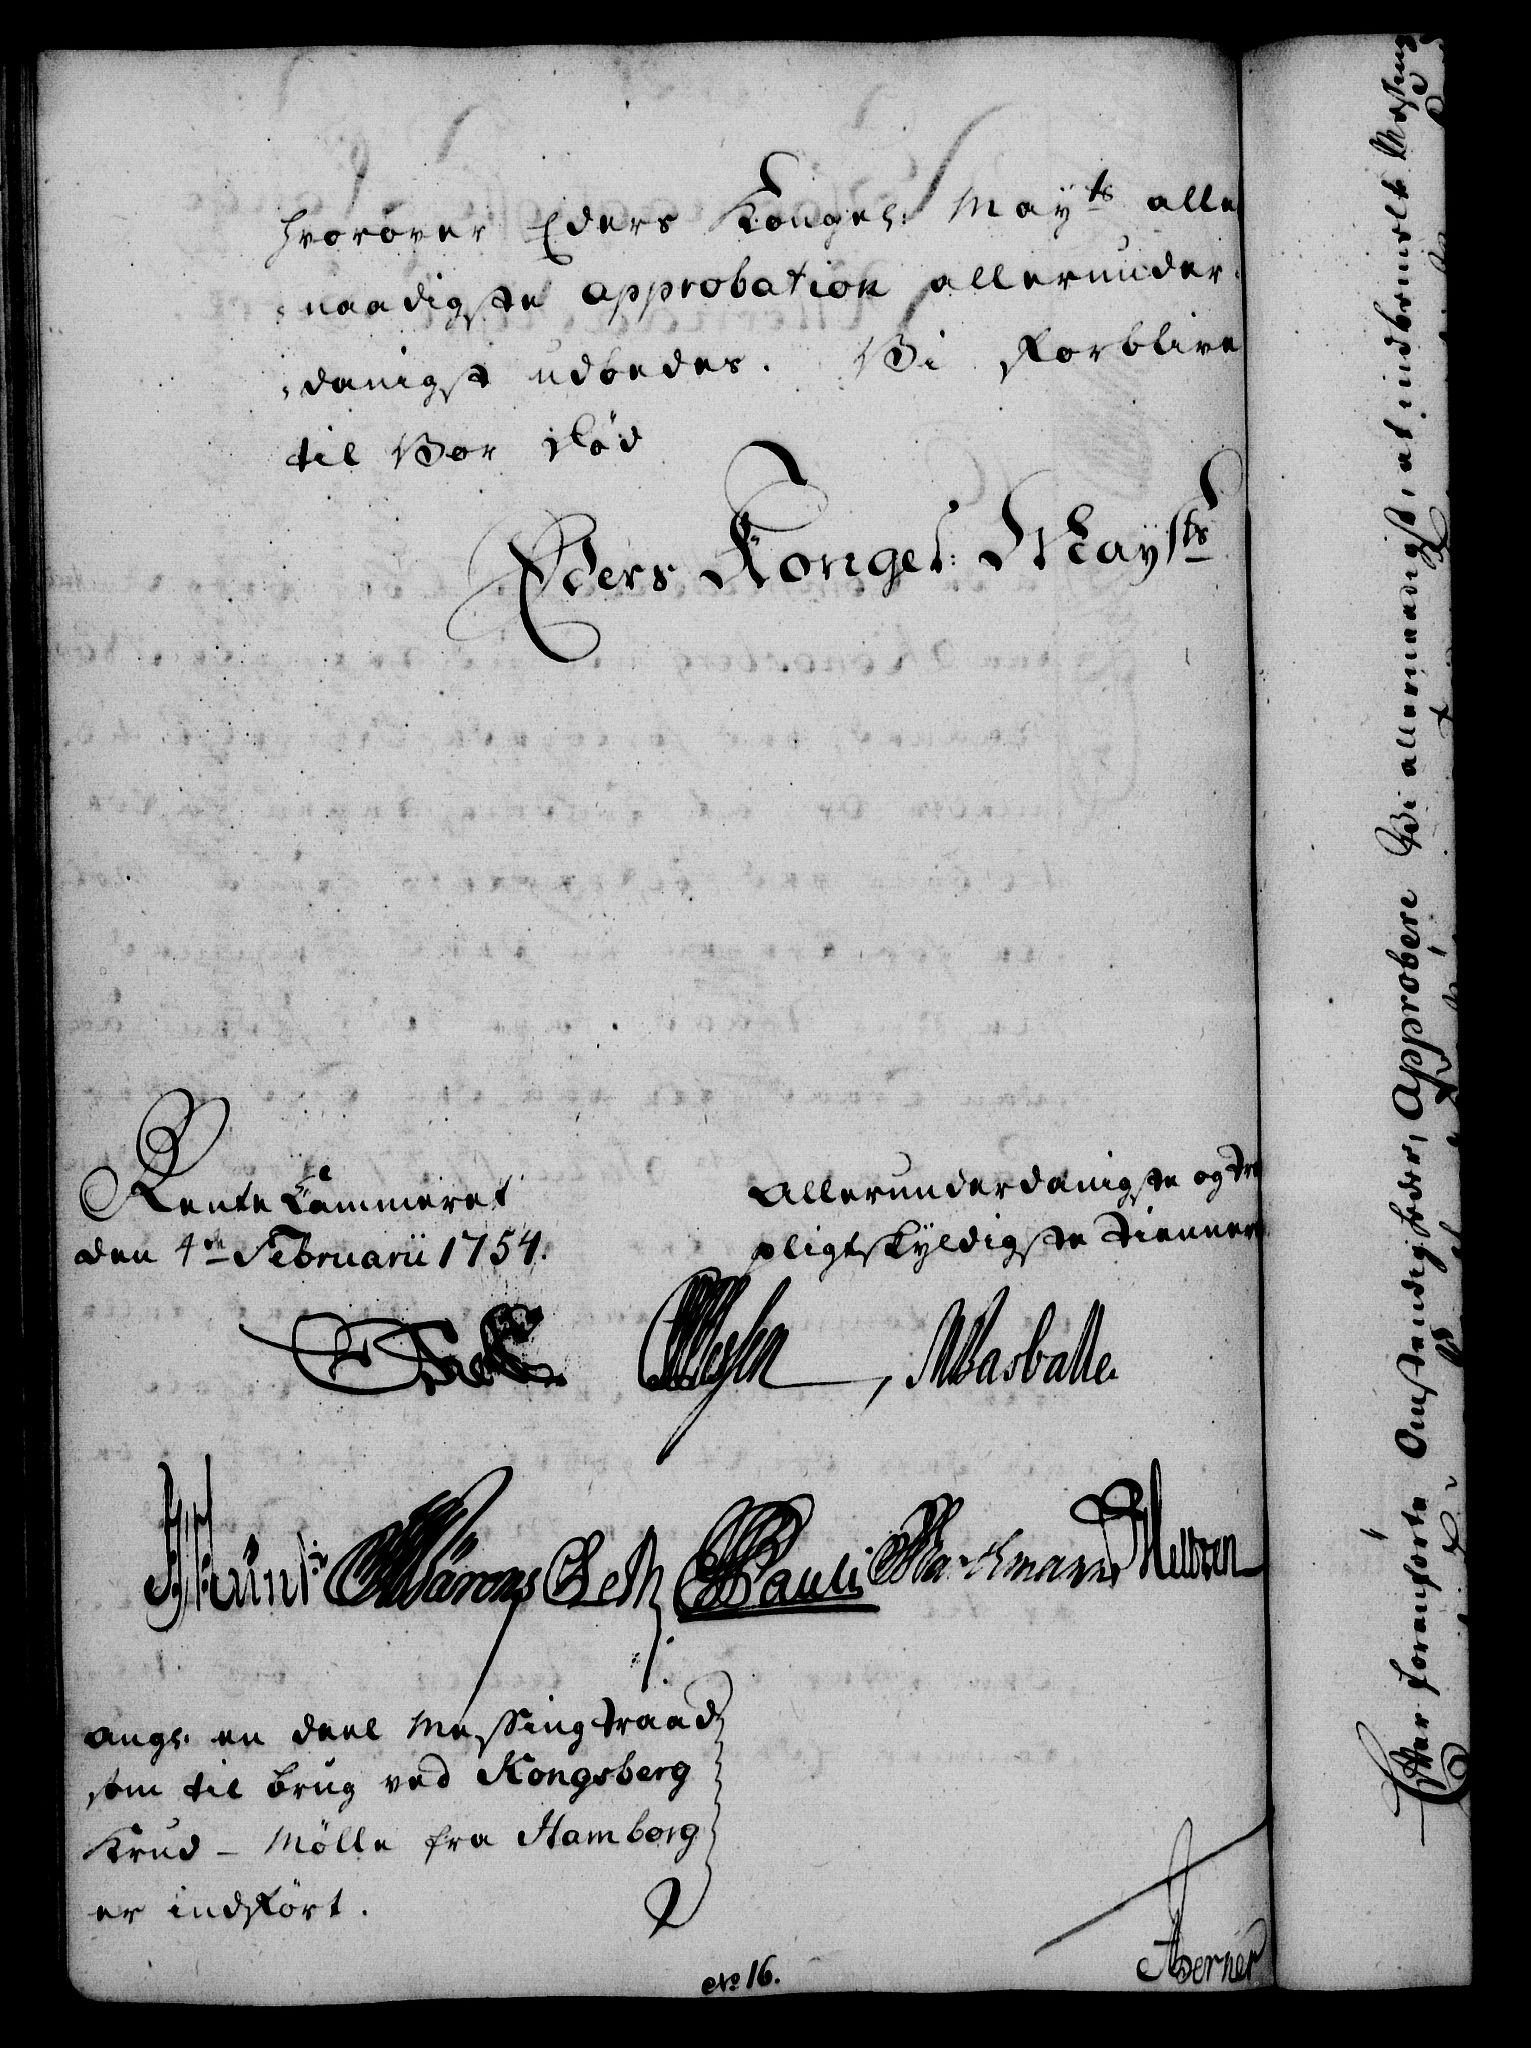 hvorover Eders Kongel: Mayts alle
naadigste approbation allerunder-
danigst udbedes. Vi forblive
til Vor Död
Eders Kongel: Maysts
Rente Cammeret
den 4de Februarii 1754.
Allerunderdanigste og tro
pligtskyldigste tienner
Wasballe
Pauli
angl. en deel Messingtraad
som til brug ved Kongsberg
Krud-Mölle fra Hamborg
er indført.
No 16.
Berner
Efter foranførte Omstændigheder, Approbere Vi allernaadigst, at indbemelte Messing